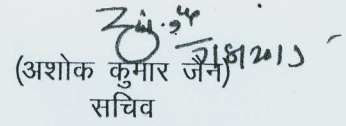 (अशोक कुमार जैन)
सचिव